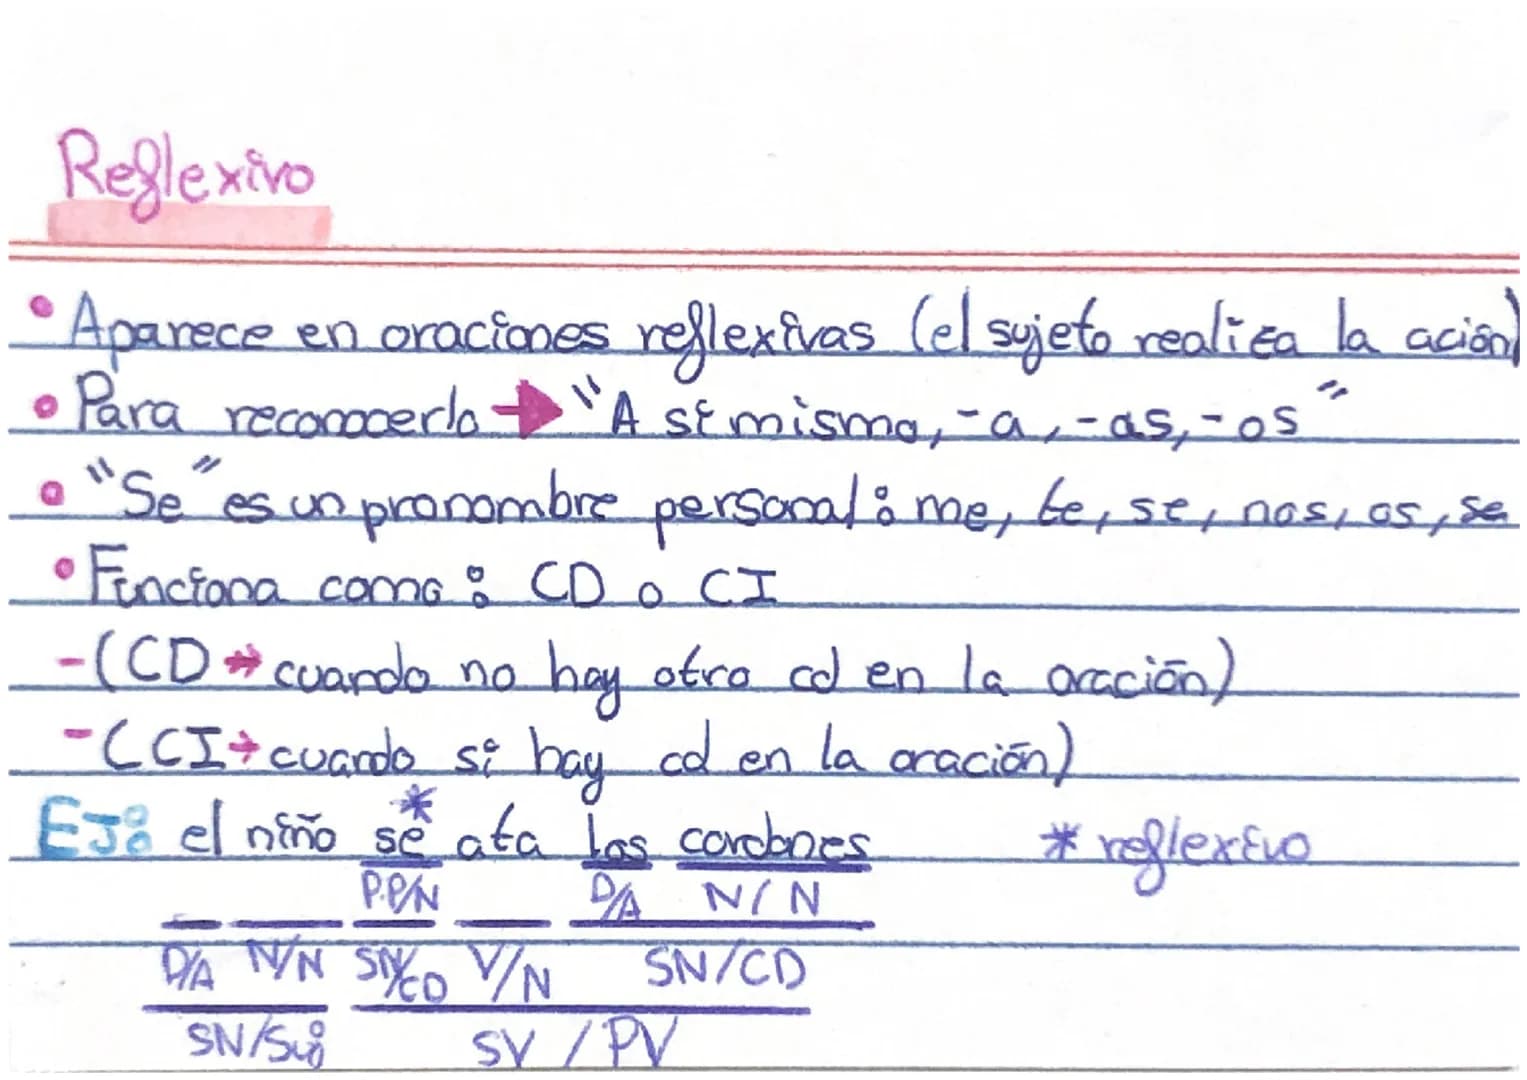 Reflexivo
• Aparece en oraciones reflexivas (el sujeto realiza la ación)
• Para reconocerlo → "A si mismo, -a, -as, -os"
• "Se" es un pronombre personal: me, te, se, nos, os, se
• Funciona como: CD o CI
-(CD → cuando no hay otro cd en la oración)
-(CI → cuando si hay cd en la oración)
EJ: el niño se* ata los cordones * reflexivo
P.P/N D/A N/N
D/A N/N SN/CD V/N SN/CD
SN/Suj SV / PV